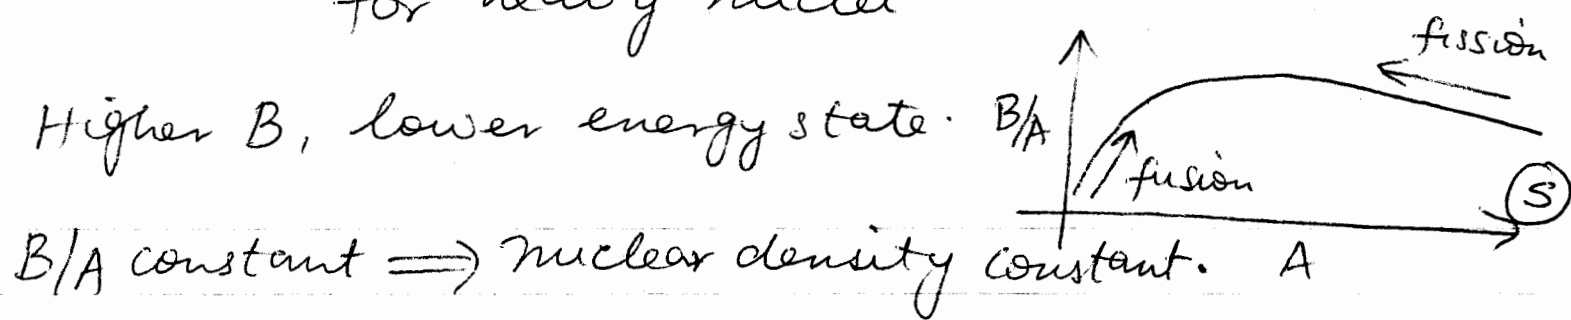 for heavy nuclei
fission
Higher B, lower energy state. B/A
fusion
S
B/A constant ⟹ nuclear density constant. A